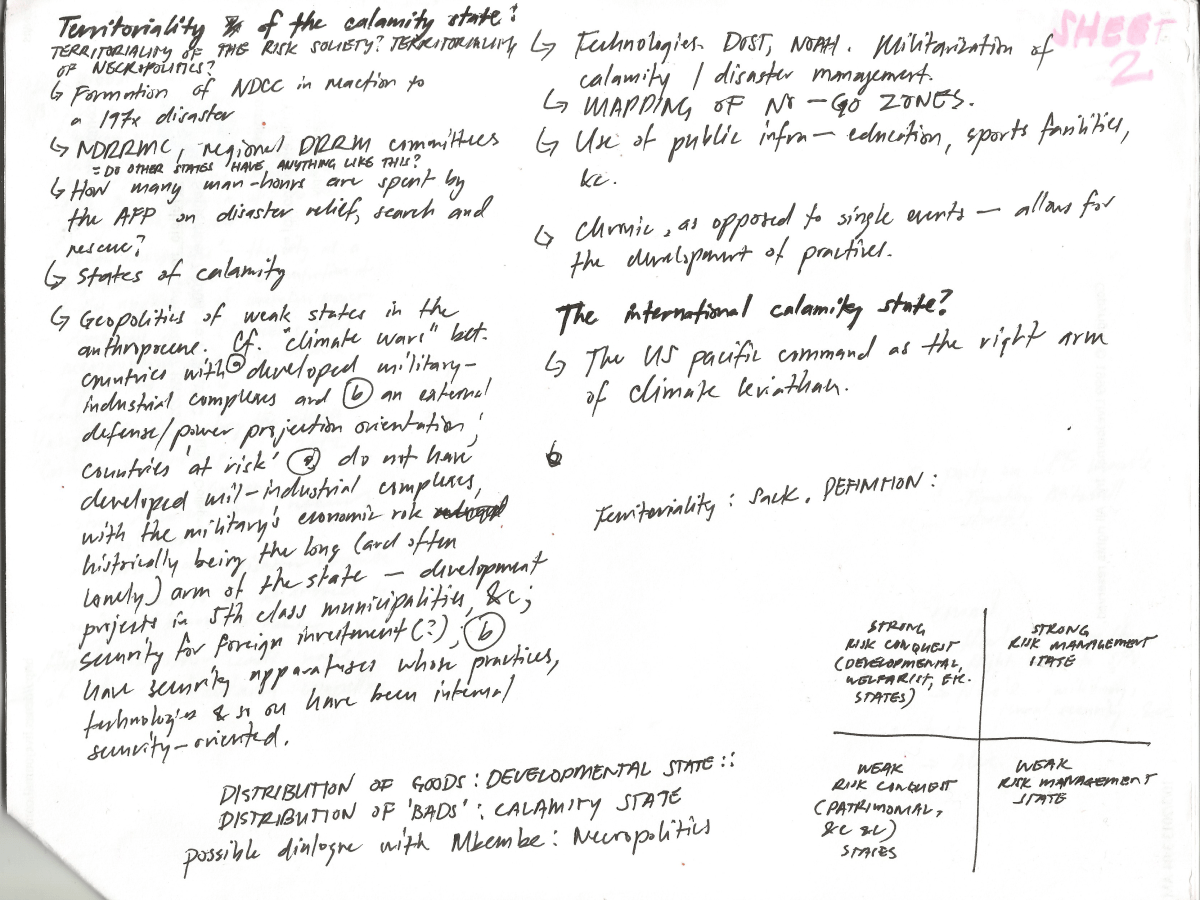 Territoriality of the calamity state:
TERRITORIALITY OF THE RISK SOCIETY? TERRITORIALITY
OF NECROPOLITICS?
↳ Formation of NDCC in reaction to
a 197x disaster
↳ NDRRMC, regional DRRM committees
= DO OTHER STATES HAVE ANYTHING LIKE THIS?
↳ How many man-hours are spent by
the AFP on disaster relief, search and
rescue?
↳ States of calamity
↳ Geopolitics of weak states in the
anthropocene. Cf. "climate wars" bet.
countries with ⓐ developed military-
industrial complexes and ⓑ an external
defense/power projection orientation;
countries 'at risk' ⓐ do not have
developed mil-industrial complexes,
with the military's economic role
historically being the long (and often
lonely) arm of the state — development
projects in 5th class municipalities, &c;
security for foreign investment (?); ⓑ
have security apparatuses whose practices,
technologies & so on have been internal
security-oriented.
DISTRIBUTION OF GOODS : DEVELOPMENTAL STATE ::
DISTRIBUTION OF 'BADS' : CALAMITY STATE
possible dialogue with Mbembe: Necropolitics
SHEET
2
↳ Technologies. DOST, NOAH. Militarization of
calamity / disaster management.
↳ MAPPING OF NO-GO ZONES.
↳ Use of public infra — education, sports facilities,
&c.
↳ Chronic, as opposed to single events — allows for
the development of practices.
The international calamity state?
↳ The US pacific command as the right arm
of climate leviathan.
Territoriality: Sack. DEFINITION:
STRONG
RISK CONQUEST
(DEVELOPMENTAL,
WELFARIST, ETC.
STATES)
STRONG
RISK MANAGEMENT
STATE
WEAK
RISK CONQUEST
(PATRIMONIAL,
&c &c)
STATES
WEAK
RISK MANAGEMENT
STATE